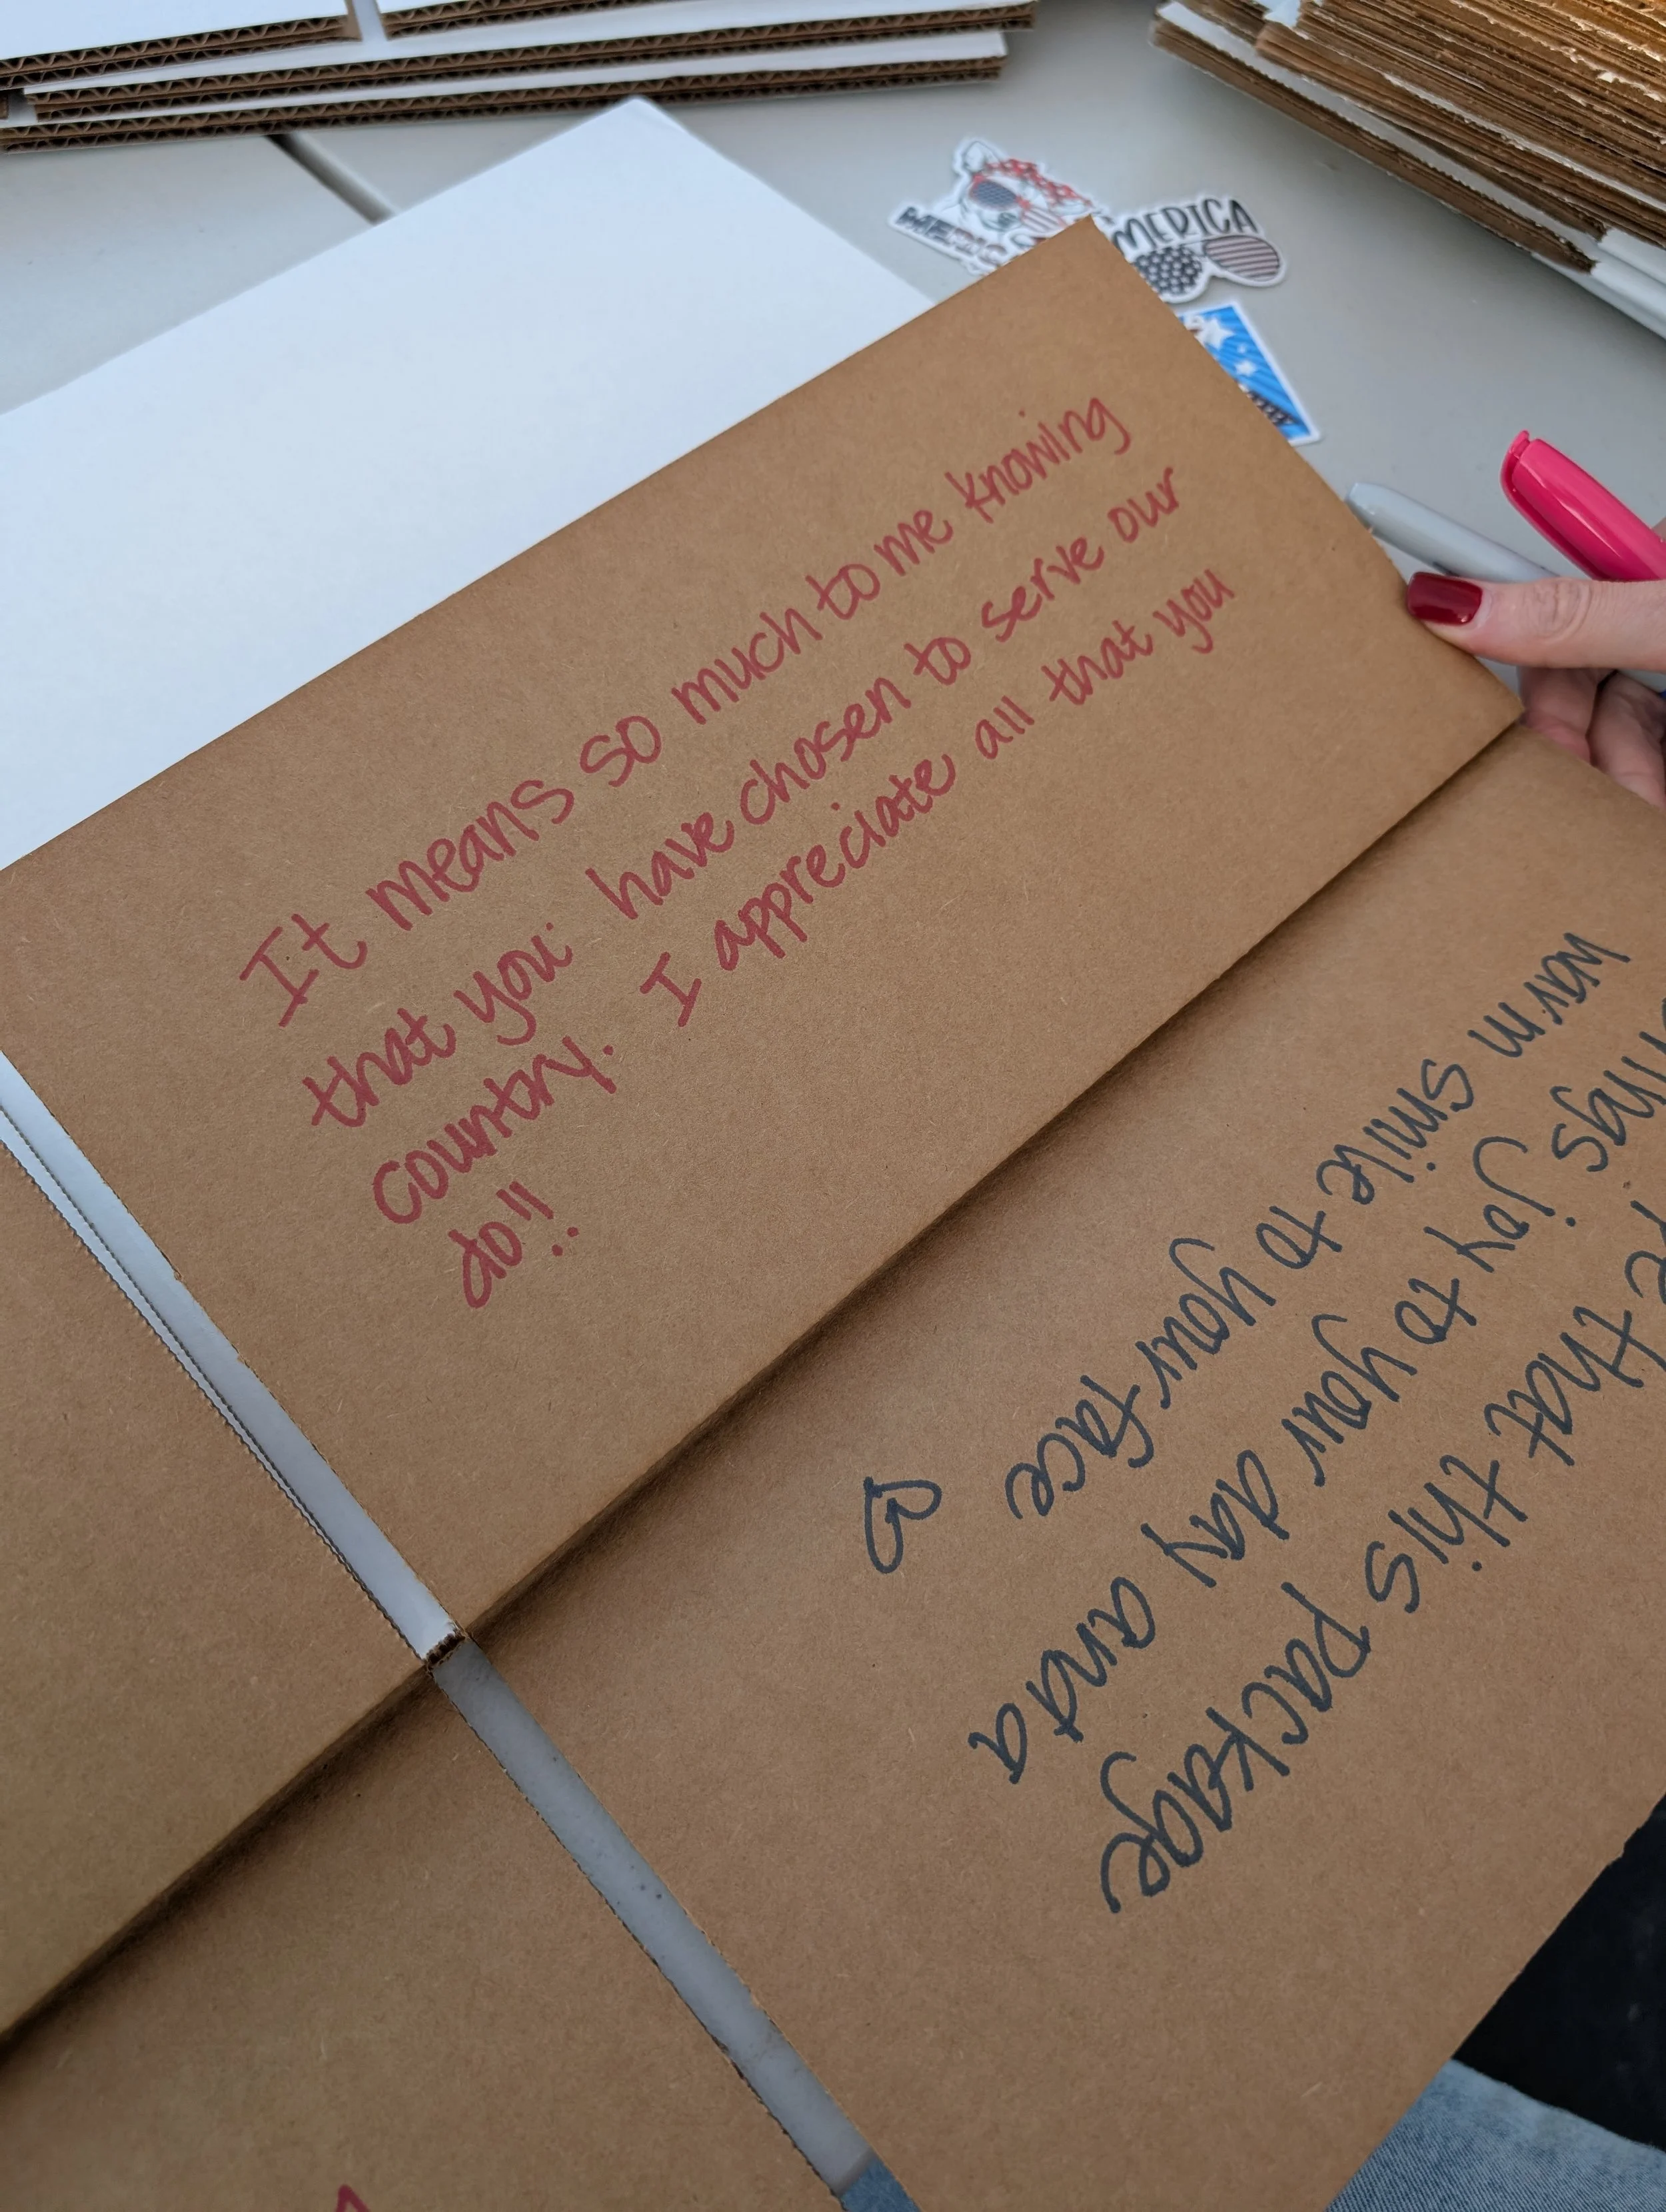 MERICA
It means so much to me knowing
that you have chosen to serve our
country. I appreciate all that you
do!!
that this package
joy to your day and a
warm smile to your face